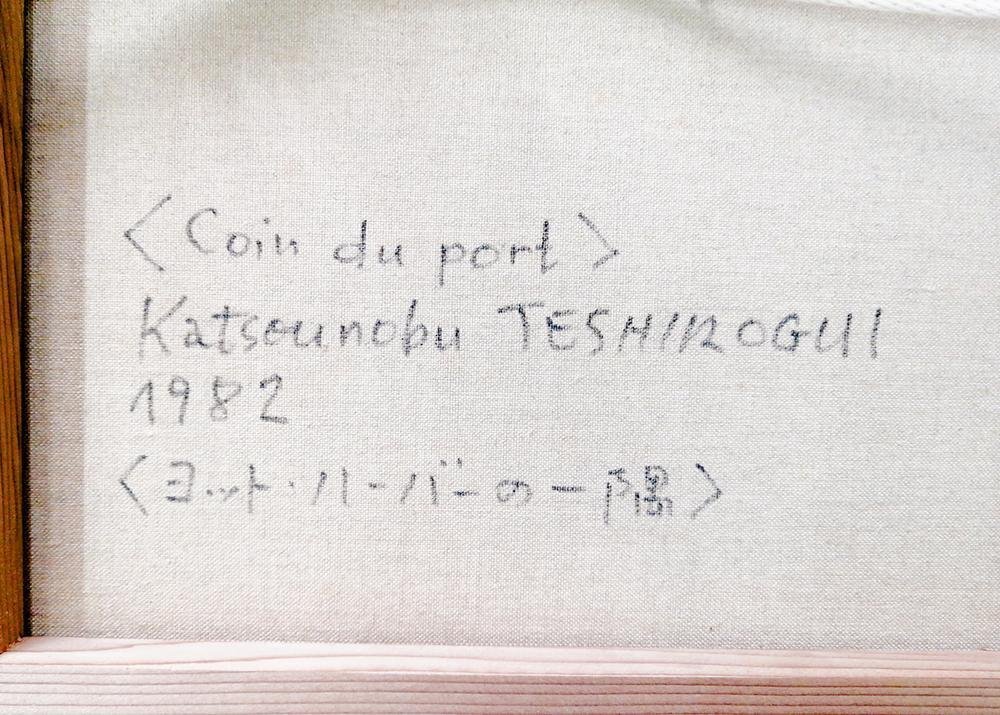 <Coin du port>
Katsounobu TESHIROGUI
1982
<ヨット・ハーバーの一隅>